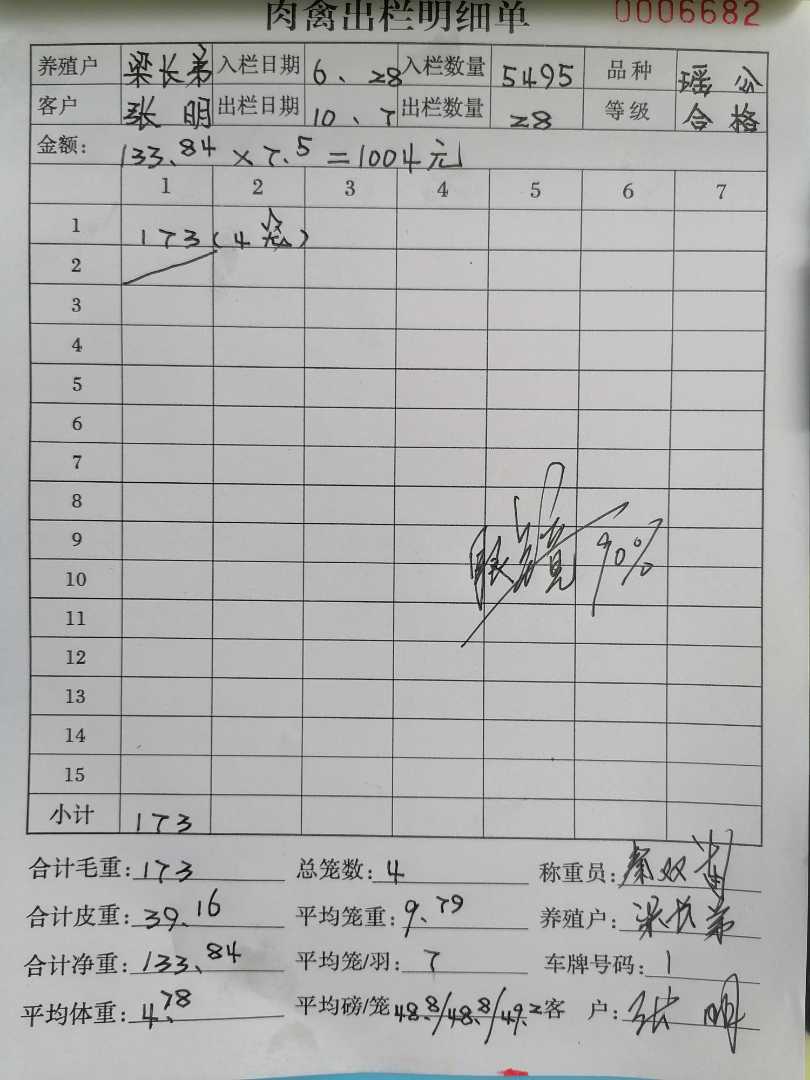 肉禽出栏明细单 0006682
养殖户 梁长弟 入栏日期 6、28 入栏数量 5495 品种 瑶公
客户 张明 出栏日期 10、7 出栏数量 28 等级 合格
金额: 133.84×7.5=1004元
1 2 3 4 5 6 7
1 173(4笼)
2
3
4
5
6
7
8
9
10
11
12
13
14
15
90%
小计 173
合计毛重: 173 总笼数: 4 称重员: 秦双
合计皮重: 39.16 平均笼重: 9.79 养殖户: 梁长弟
合计净重: 133.84 平均笼/羽: 7 车牌号码: 1
平均体重: 4.78 平均磅/笼 48.8/48.8/49.2 客 户: 张明